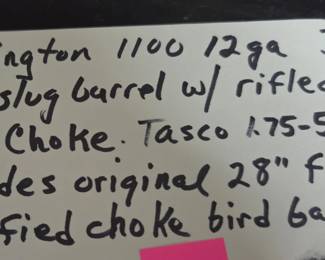 ington 1100 12ga
slug barrel w/ rifled
Choke. Tasco 1.75-5
des original 28" f
fied choke bird ba